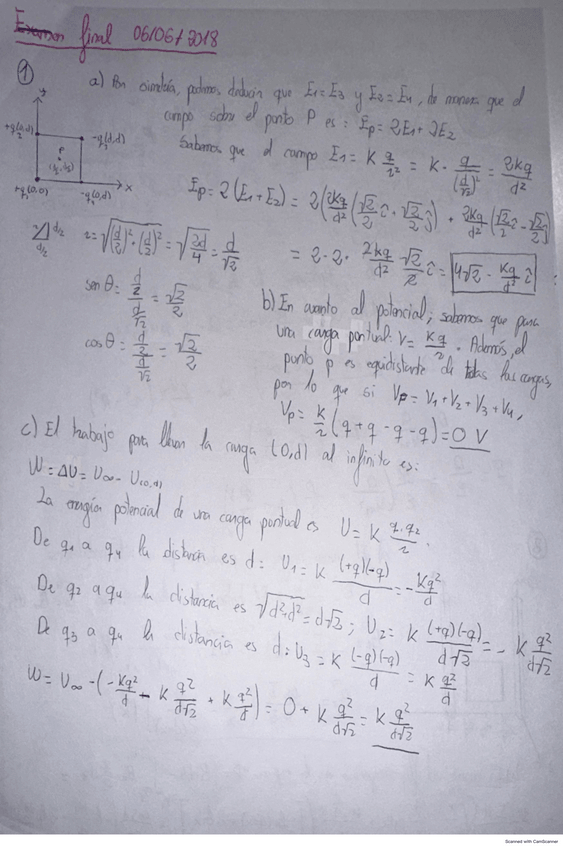 Examen final 06/06/2018
① a) Por simetría, podemos deducir que E1=E3 y E2=E4, de manera que el
campo sobre el punto P es: Ep=2E1+2E2
Sabemos que el campo E1= K q/r² = K · q/(d/√2)² = 2Kq/d²
y
+q(0,d)
-q(d,d)
P
(d/2,d/2)
+q(0,0)
-q(d,0)
x
Ep=2(E1+E2)= 2(2Kq/d² (√2/2 î + √2/2 ĵ) + 2Kq/d² (√2/2 î - √2/2 ĵ)
d/2
d/2
r=√((d/2)²+(d/2)²) = √(2d/4) = d/√2
= 2·2· 2Kq/d² √2/2 î = 4√2 · Kq/d² î
sen θ = (d/2)/(d/√2) = √2/2
cos θ = (d/2)/(d/√2) = √2/2
b) En cuanto al potencial, sabemos que para
una carga puntual: V= Kq/r. Además, el
punto p es equidistante de todas las cargas,
por lo que si Vp = V1+V2+V3+V4,
Vp= K/r (q+q-q-q)=0 V
c) El trabajo para llevar la carga (0,d) al infinito es:
W=ΔU= U∞ - U(0,d)
La energía potencial de una carga puntual es U= K q·q2/r.
De q1 a q4 la distancia es d: U1= K (+q)(-q)/d = -Kq²/d
De q2 a q4 la distancia es √(d²+d²)=d√2; U2= K (+q)(-q)/d√2 = -K q²/d√2
De q3 a q4 la distancia es d: U3= K (-q)(-q)/d = K q²/d
W= U∞ -(-Kq²/d - K q²/d√2 + K q²/d)= 0 + K q²/d√2 = K q²/d√2
Scanned with CamScanner